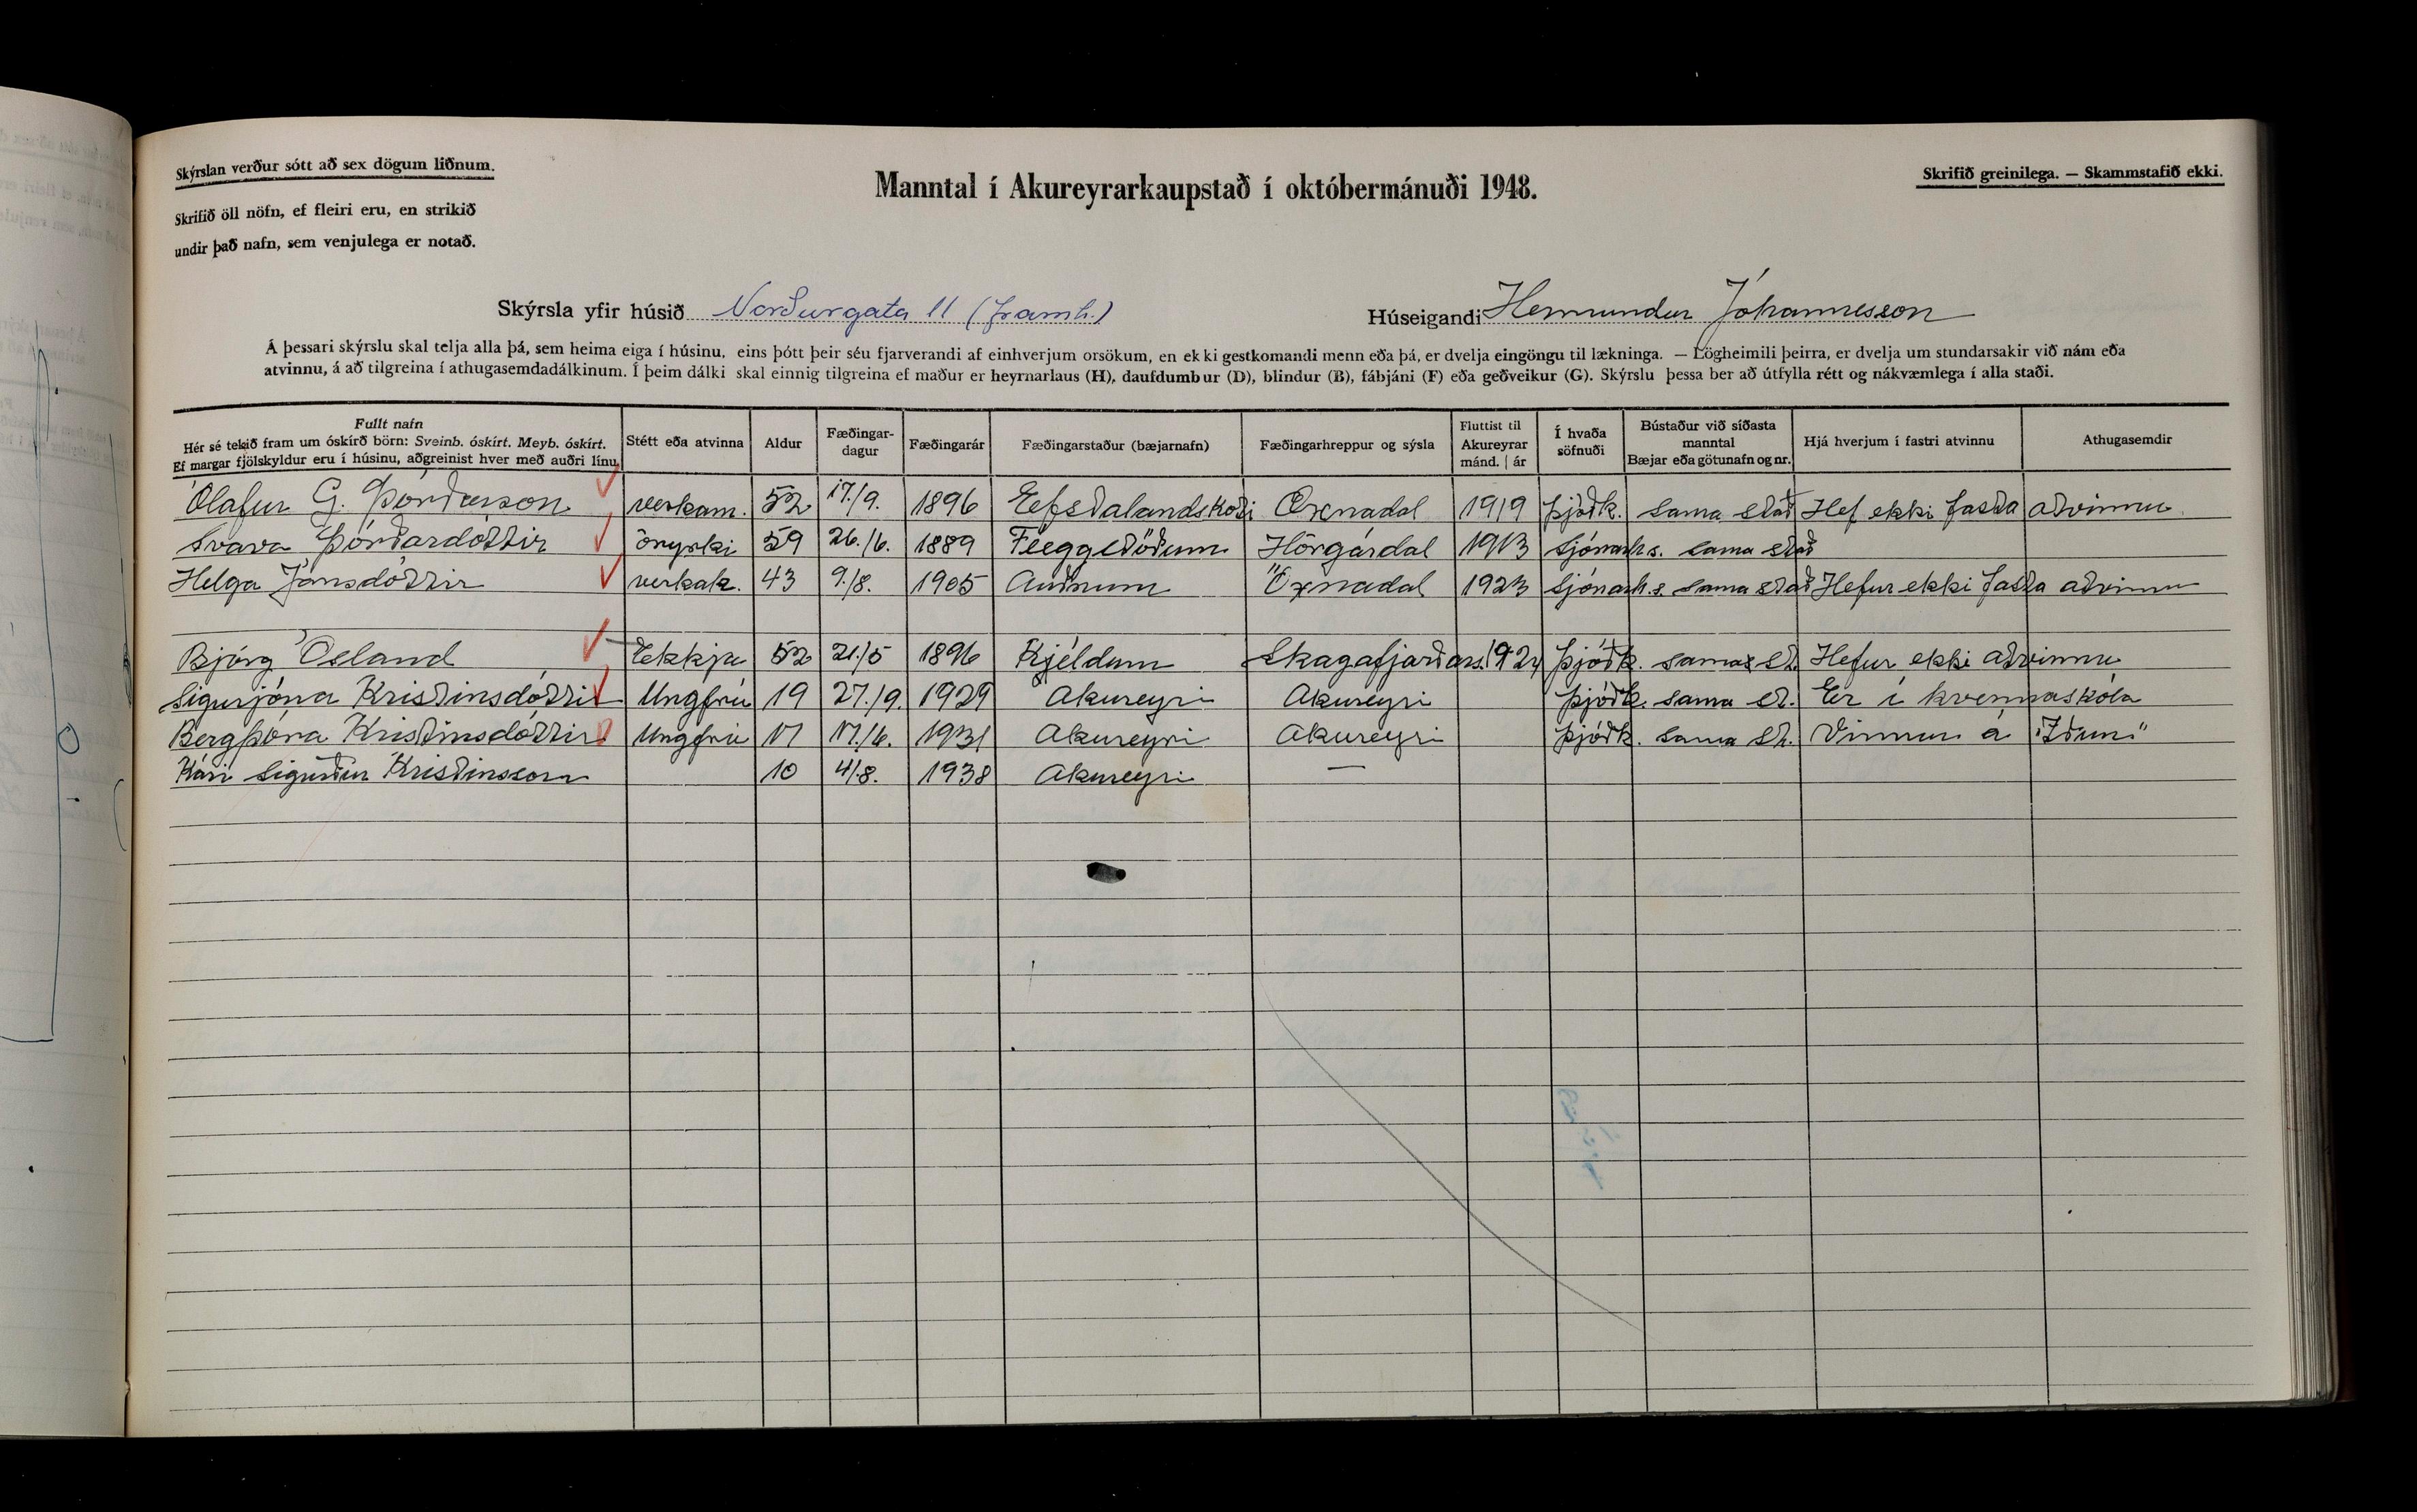 Skýrslan verður sótt að sex dögum liðnum.
Skrifið öll nöfn, ef fleiri eru, en strikið
undir það nafn, sem venjulega er notað.
Manntal í Akureyrarkaupstað í októbermánuði 1948.
Skrifið greinilega. — Skammstafið ekki.
Skýrsla yfir húsið Norðurgata 11 (framh.) Húseigandi Hermundur Jóhannesson
Á þessari skýrslu skal telja alla þá, sem heima eiga í húsinu, eins þótt þeir séu fjarverandi af einhverjum orsökum, en ekki gestkomandi menn eða þá, er dvelja eingöngu til lækninga. — Lögheimili þeirra, er dvelja um stundarsakir við nám eða
atvinnu, á að tilgreina í athugasemdadálkinum. Í þeim dálki skal einnig tilgreina ef maður er heyrnarlaus (H), daufdumbur (D), blindur (B), fábjáni (F) eða geðveikur (G). Skýrslu þessa ber að útfylla rétt og nákvæmlega í alla staði.
Fullt nafn
Hér sé tekið fram um óskírð börn: Sveinb. óskírt. Meyb. óskírt.
Ef margar fjölskyldur eru í húsinu, aðgreinist hver með auðri línu.
Stétt eða atvinna
Aldur
Fæðingar-
dagur
Fæðingarár
Fæðingarstaður (bæjarnafn)
Fæðingarhreppur og sýsla
Fluttist til
Akureyrar
mánd. | ár
Í hvaða
söfnuði
Bústaður við síðasta
manntal
Bæjar eða götunafn og nr.
Hjá hverjum í fastri atvinnu
Athugasemdir
Ólafur G. Þórðarson verkam. 52 17./9. 1896 Öxnadal 1919 þjóðk. sama stað Hef ekki fasta atvinnu
Svava Þórðardóttir öryrki 59 26./6. 1889 Hörgárdal 1913 sjónarh.s. sama stað
Helga Jónsdóttir verkak. 43 9./8. 1905 Auðnum Öxnadal 1923 sjónarh.s. sama stað Hefur ekki fasta atvinnu
Björg Ósland Ekkja 52 21./5 1896 Kjéldum Skagafjarðars. þjóðk. sama st. Hefur ekki atvinnu
Sigurjóna Kristinsdóttir Ungfrú 19 27./9. 1929 Akureyri Akureyri þjóðk. sama st. Er í kvennaskóla
Bergþóra Kristinsdóttir Ungfrú 17 17./6. 1931 Akureyri Akureyri þjóðk. sama st. Vinnur á "Iðunni"
Kári Sigurður Kristinsson 10 4/8. 1938 Akureyri —